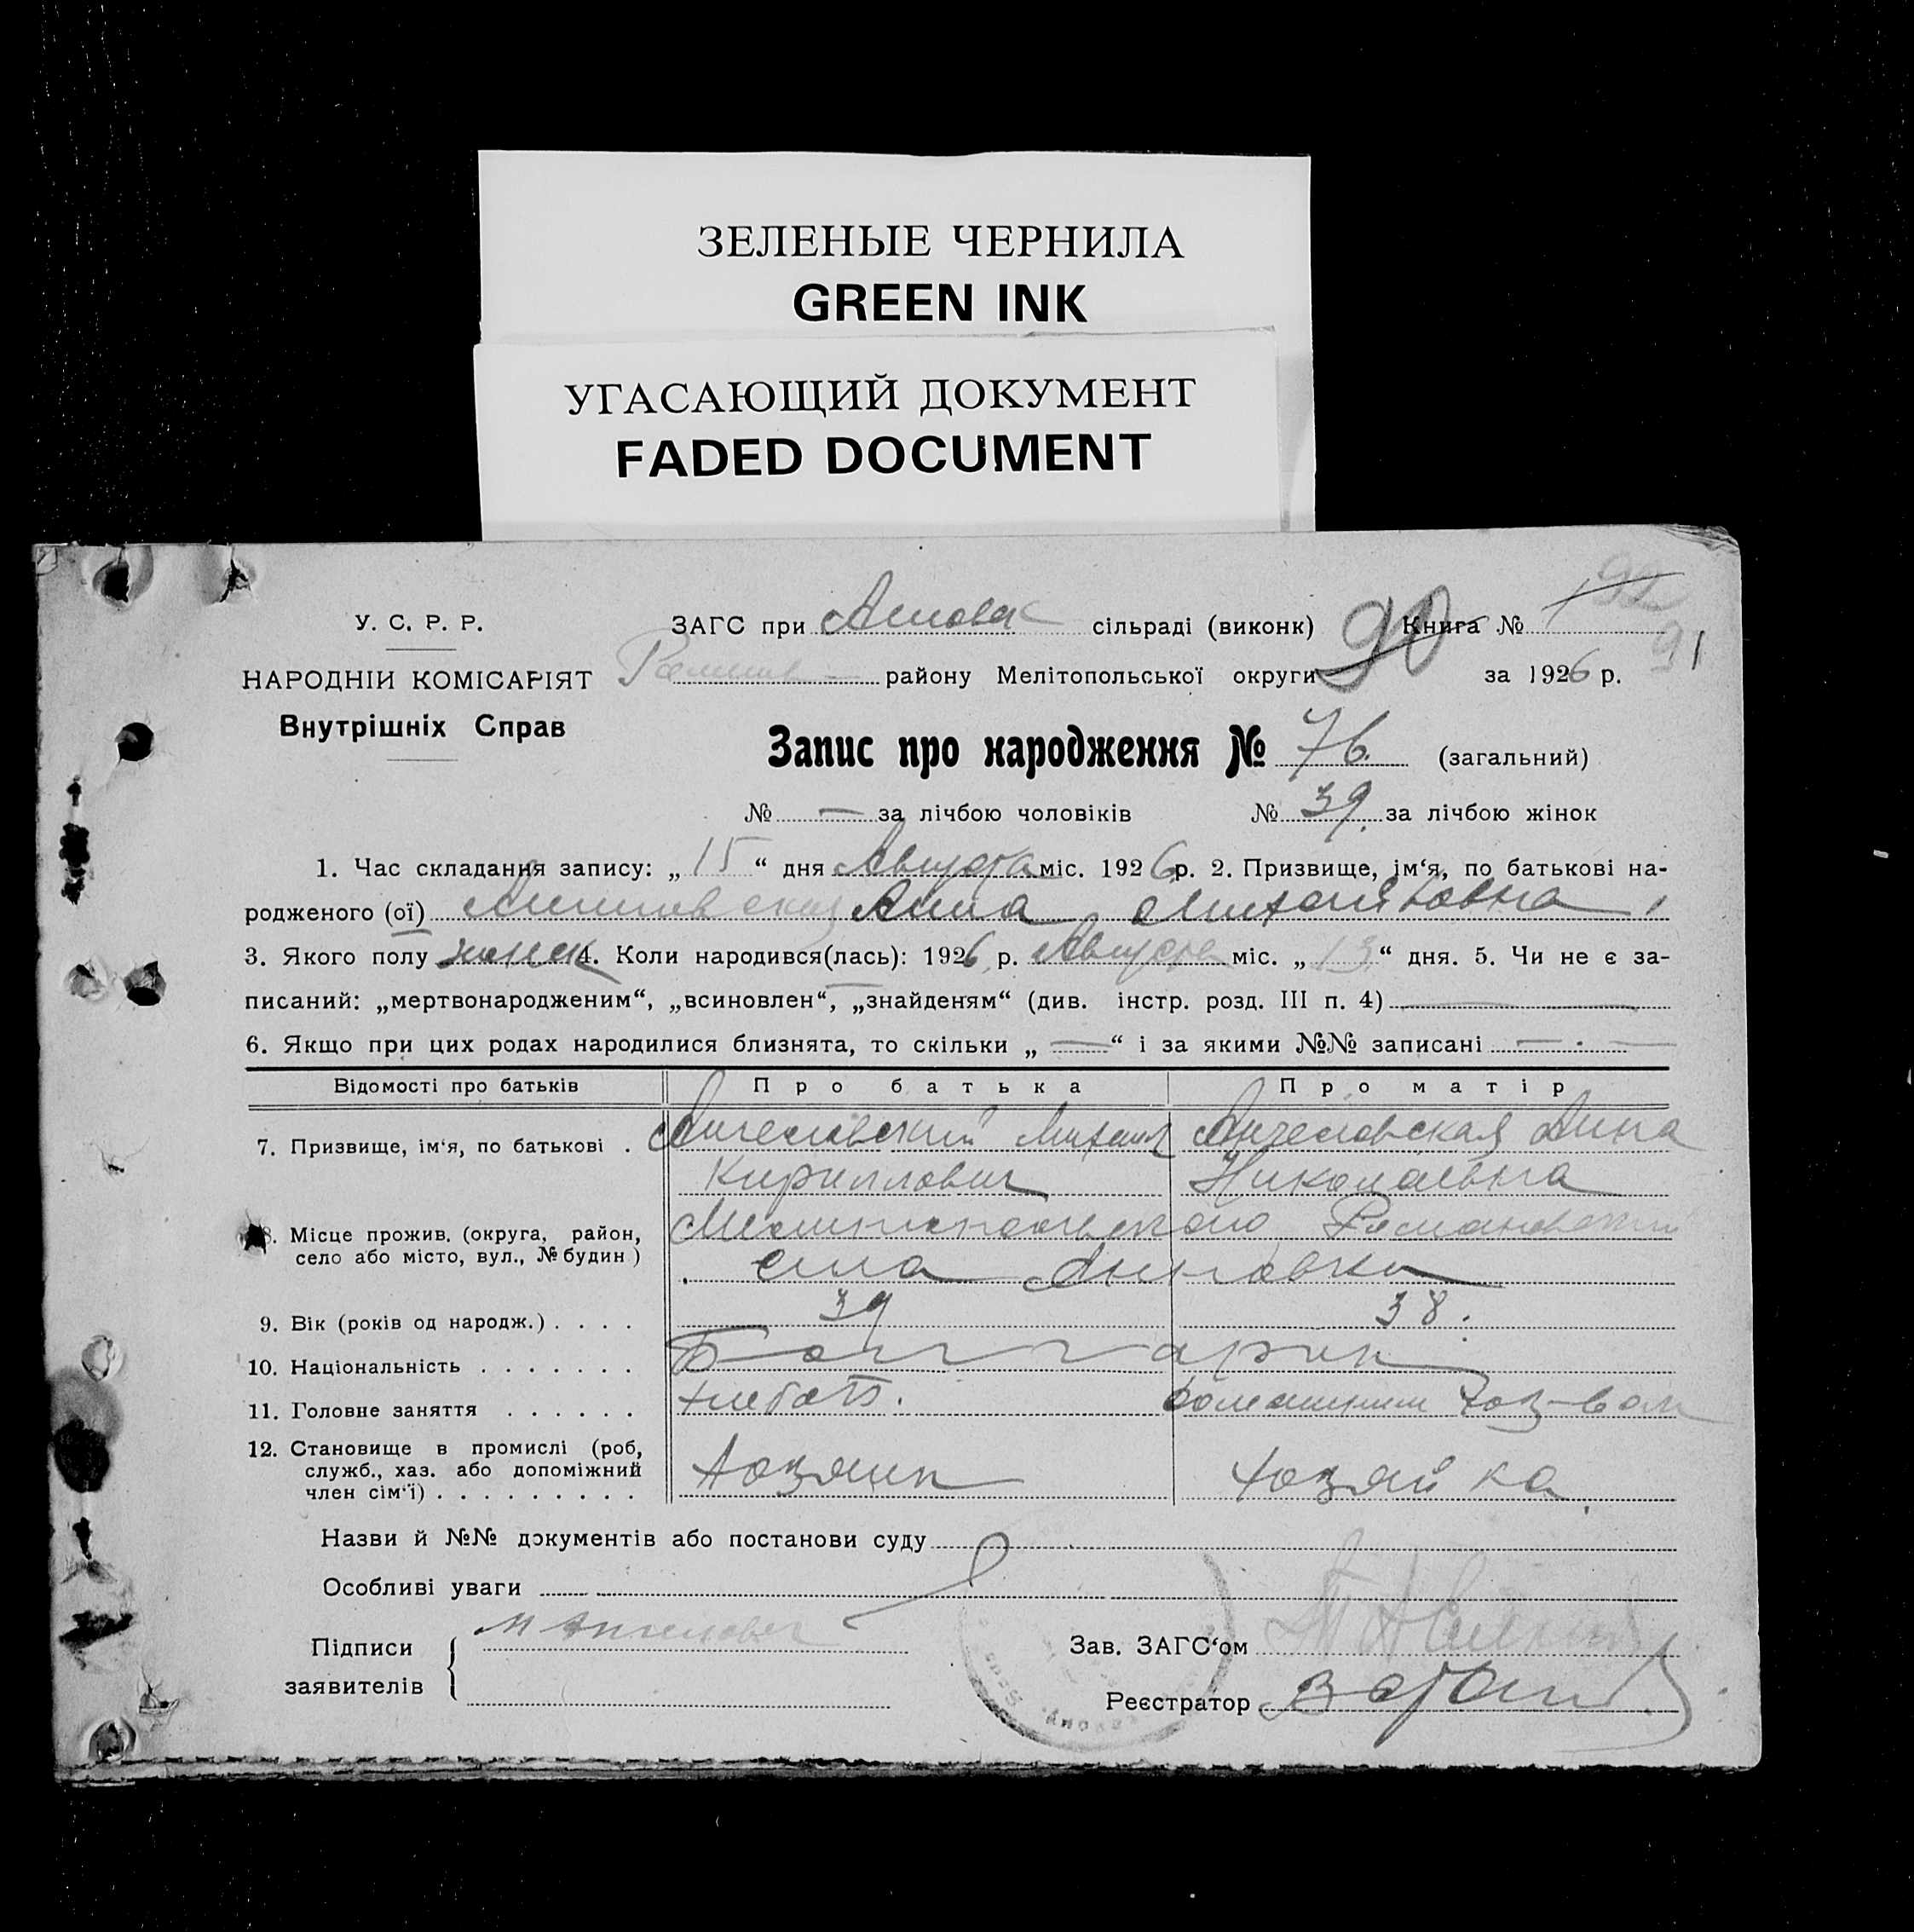 ЗЕЛЕНЫЕ ЧЕРНИЛА
GREEN INK
УГАСАЮЩИЙ ДОКУМЕНТ
FADED DOCUMENT
У. С. Р. Р.
НАРОДНІЙ КОМІСАРІЯТ
Внутрішніх Справ
ЗАГС при сільраді (виконк) 90 Книга № 1 92
району Мелітопольської округи за 1926 р. 91
Запис про народження № 76. (загальний)
№ — за лічбою чоловіків № 39. за лічбою жінок
1. Час складання запису: „ 15 “ дня Августа міс. 1926 р. 2. Призвище, ім‘я, по батькові на-
родженого (ої) Анна Михайловна
3. Якого полу женск 4. Коли народився(лась): 1926 р. Августа міс. „ 13 “ дня. 5. Чи не є за-
писаний: „мертвонародженим“, „всиновлен“, „знайденям“ (див. інстр. розд. III п. 4)
6. Якщо при цих родах народилися близнята, то скільки „ — “ і за якими №№ записані — . —
Відомості про батьків Про батька Про матір
7. Призвище, ім‘я, по батькові . Ангеловский Михаил Ангеловская Анна
Кириллович Николаевна
8. Місце прожив. (округа, район, Мелитопольского Романовский
село або місто, вул., № будин) села
9. Вік (років од народж.) . . . . 39 38.
10. Національність . . . . . . . Болгарин
11. Головне заняття . . . . . . хлебоп. домашним хоз-вом
12. Становище в промислі (роб,
служб., хаз. або допоміжний Хозяин хозяйка
член сім‘ї) . . . . . . . . .
Назви й №№ документів або постанови суду
Особливі уваги
Підписи
заявителів
Зав. ЗАГС‘ом
Реєстратор